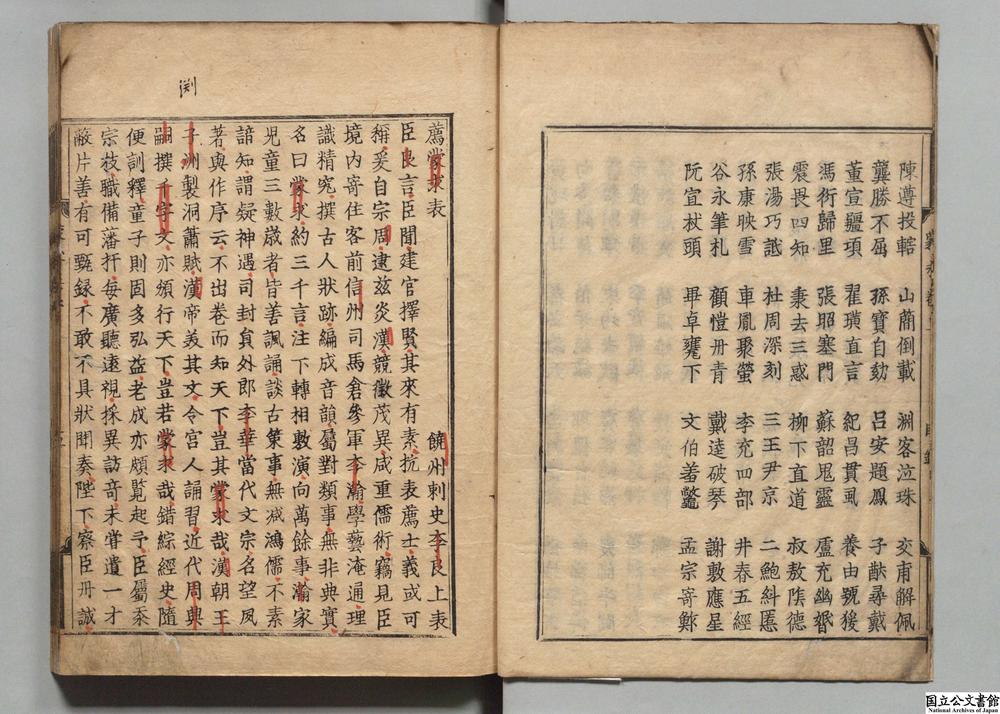 陳遵投轄 山簡倒載 淵客泣珠 交甫解佩
龔勝不屈 孫寶自劾 呂安題鳳 子猷尋戴
董宣彊項 翟璜直言 紀昌貫虱 養由號猨
馮衍歸里 張昭塞門 蘇韶鬼靈 盧充幽婚
震畏四知 秉去三惑 柳下直道 叔敖陰德
張湯巧詆 杜周深刻 三王尹京 二鮑糾慝
孫康映雪 車胤聚螢 李充四部 井春五經
谷永筆札 顧愷丹青 戴逵破琴 謝敷應星
阮宣杖頭 畢卓甕下 文伯羞鼈 孟宗寄鮓
渕
薦蒙求表
饒州刺史李良上表
臣良言臣聞建官擇賢其來有素抗表薦士義或可
稱爰自宗周逮茲炎漢競徵茂異咸重儒術竊見臣
境內寄住客前信州司馬倉參軍李瀚學藝淹通理
識精究撰古人狀跡編成音韻屬對類事無非典實
名曰蒙求約三千言注下轉相敷演向萬餘事瀚家
兒童三數歲者皆善諷誦談古策事無減鴻儒不素
諳知謂疑神遇司封員外郎李華當代文宗名望夙
著與作序云不出卷而知天下豈其蒙求哉漢朝王
子淵製洞蕭賦漢帝美其文令宮人誦習近代周興
嗣撰千字文亦頒行天下豈若蒙求哉錯綜經史隨
便訓釋童子則固多弘益老成亦頗覽起予臣屬忝
宗枝職備藩扞每廣聽遠視採異訪奇未嘗遺一才
蔽片善有可甄錄不敢不具狀聞奏陛下察臣丹誠
国立公文書館
National Archives of Japan